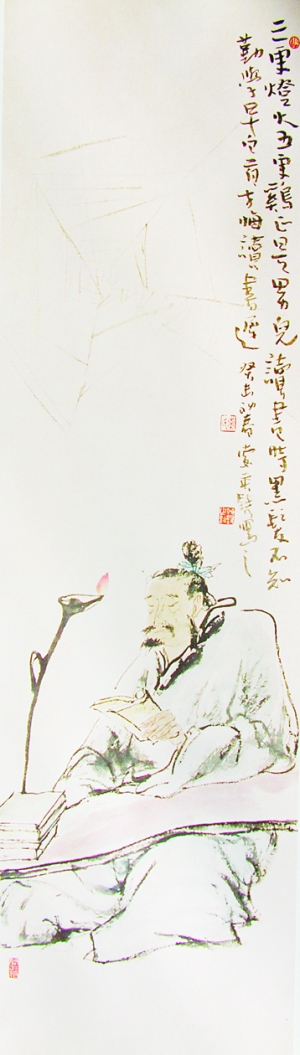 三更燈火五更鷄正是男兒讀書時黑髮不知
勤學早白首方悔讀書遲 癸未初春 寫之